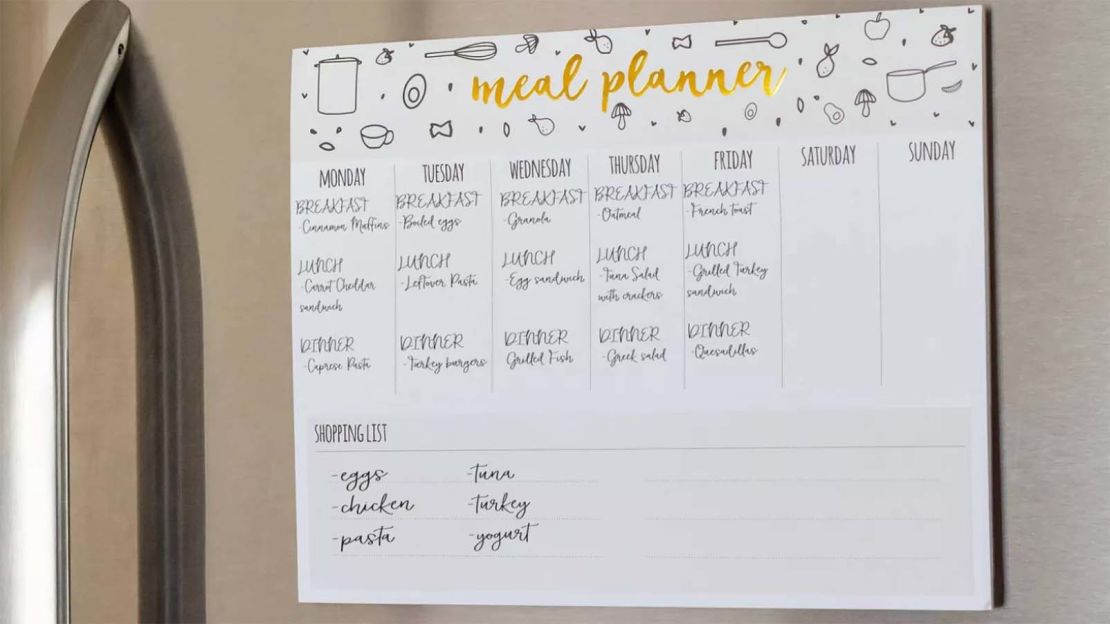 meal planner
MONDAY
BREAKFAST
-Cinnamon Muffins
LUNCH
-Carrot Cheddar
sandwich
DINNER
-Caprese Pasta
TUESDAY
BREAKFAST
-Boiled eggs
LUNCH
-Leftover Pasta
DINNER
-Turkey burgers
WEDNESDAY
BREAKFAST
-Granola
LUNCH
-Egg sandwich
DINNER
Grilled Fish
THURSDAY
BREAKFAST
-Oatmeal
LUNCH
-Tuna Salad
with crackers
DINNER
-Greek salad
FRIDAY
BREAKFAST
-French toast
LUNCH
-Grilled Turkey
sandwich
DINNER
-Quesadillas
SATURDAY
SUNDAY
SHOPPING LIST
-eggs
-chicken
-pasta
-tuna
-turkey
-yogurt